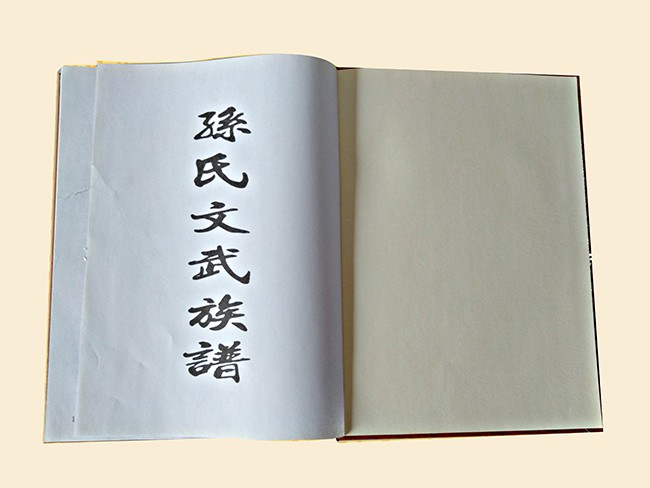 孫氏文武族譜